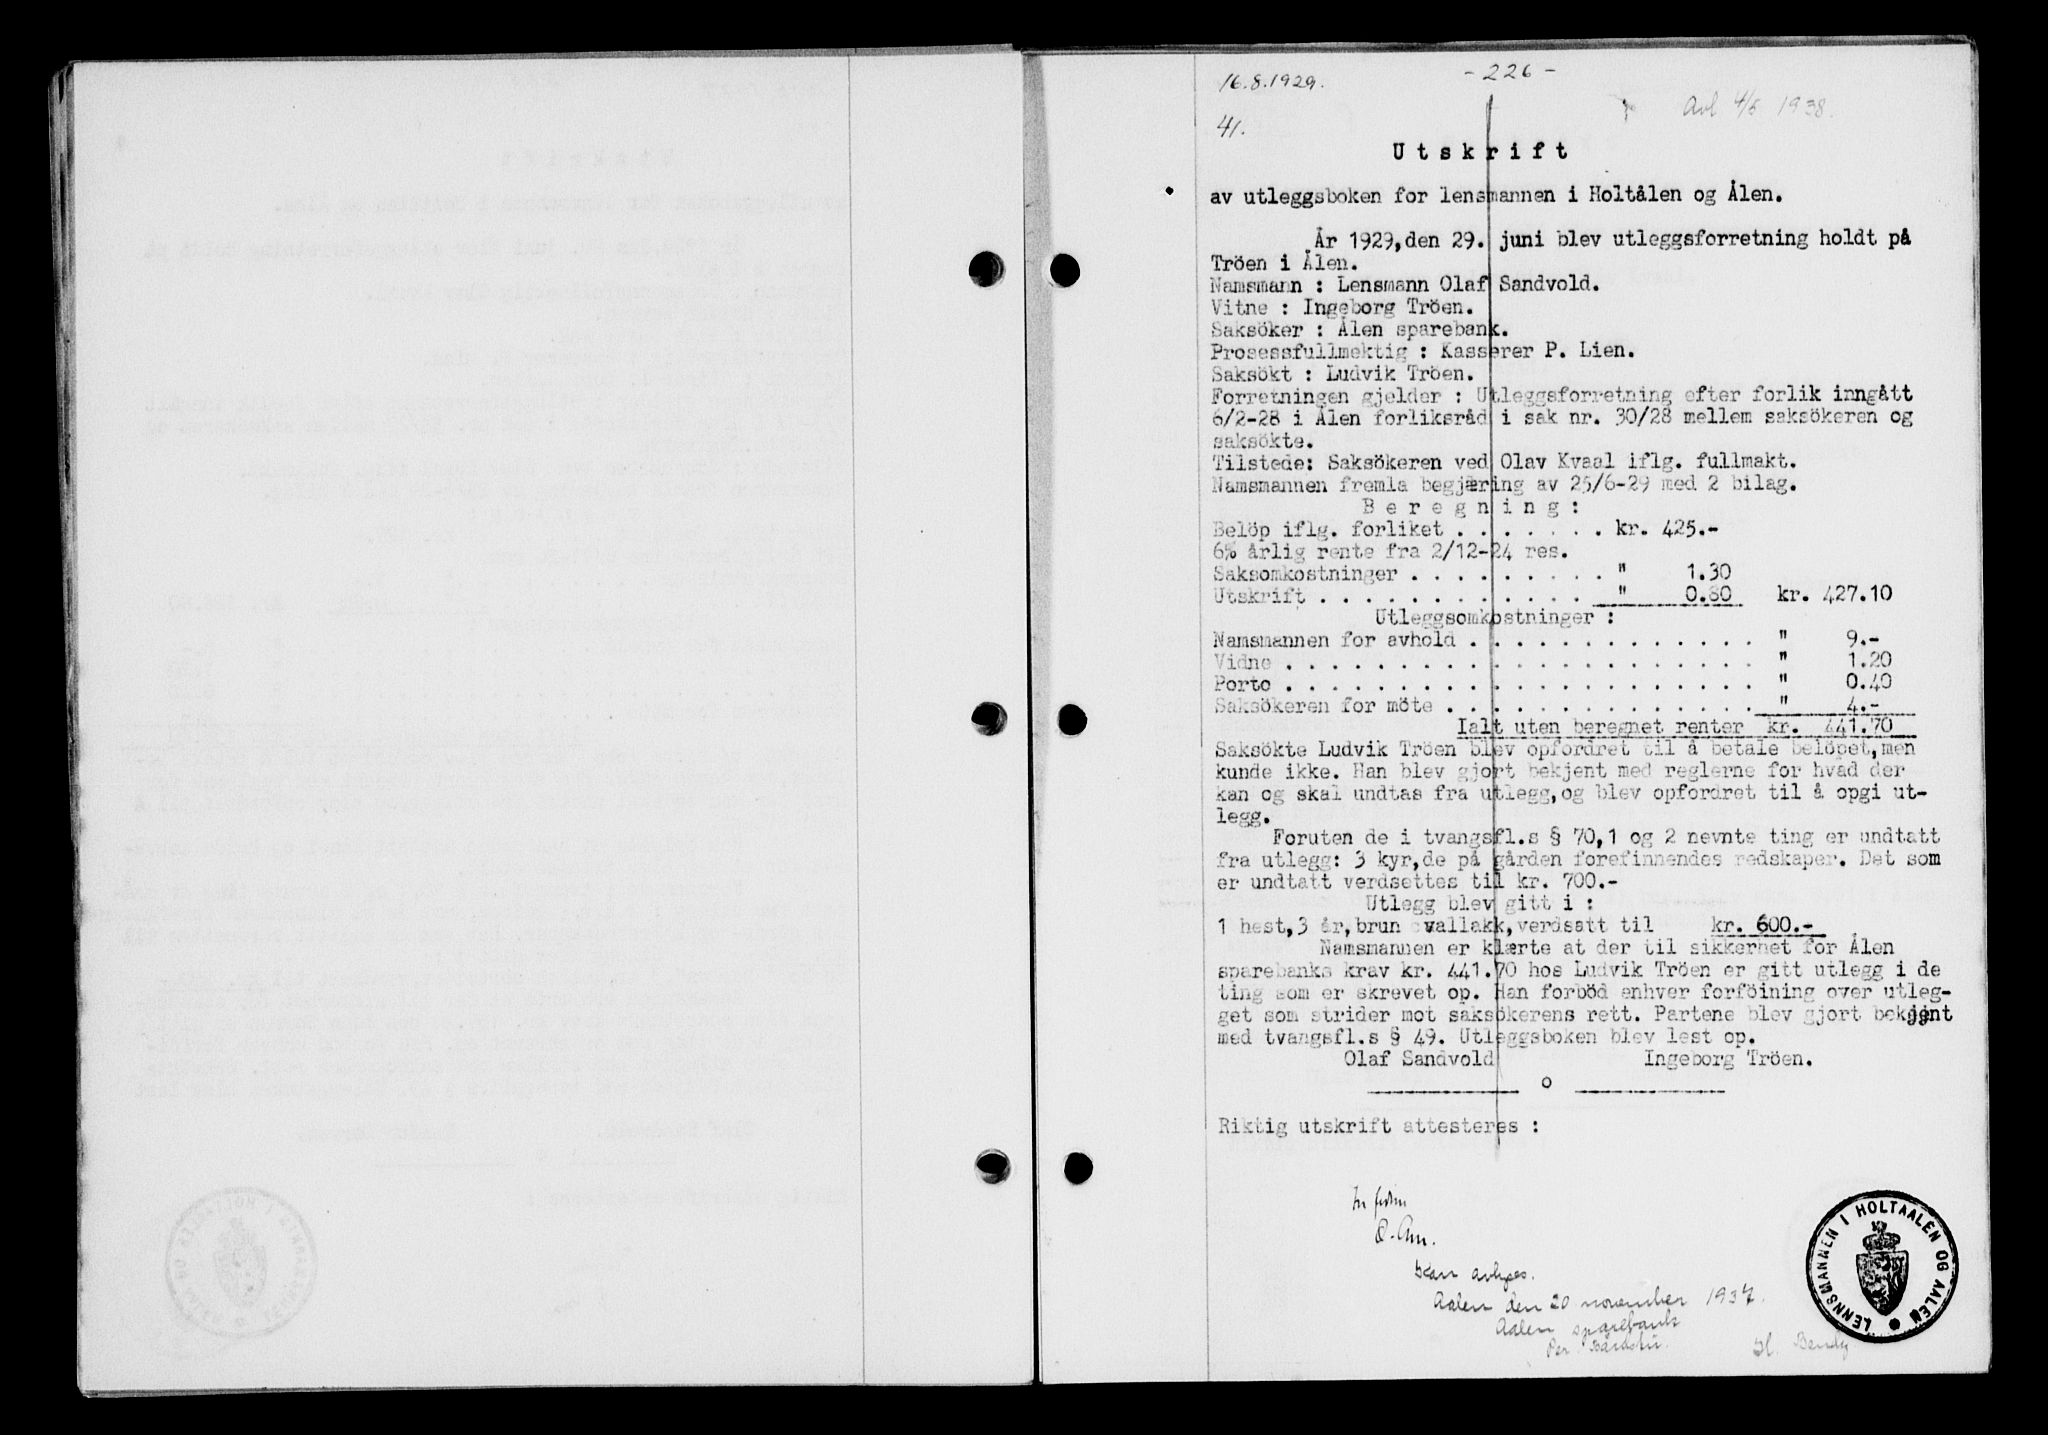 16.8.1929.
- 226 -
Avl 4/5 1938.
41.
Utskrift
av utleggsboken for lensmannen i Holtålen og Ålen.
År 1929, den 29. juni blev utleggsforretning holdt på
Tröen i Ålen.
Namsmann : Lensmann Olaf Sandvold.
Vitne : Ingeborg Tröen.
Saksöker : Ålen sparebank.
Prosessfullmektig : Kasserer P. Lien.
Saksökt : Ludvik Tröen.
Forretningen gjelder : Utleggsforretning efter forlik inngått
6/2-28 i Ålen forliksråd i sak nr. 30/28 mellem saksökeren og
saksökte.
Tilstede: Saksökeren ved Olav Kvaal iflg. fullmakt.
Namsmannen fremla begjæring av 25/6-29 med 2 bilag.
Beregning:
Belöp iflg. forliket . . . . . . . kr. 425.-
6% årlig rente fra 2/12-24 res.
Saksomkostninger . . . . . . . . . " 1.30
Utskrift . . . . . . . . . . . . . " 0.80 kr. 427.10
Utleggsomkostninger :
Namsmannen for avhold . . . . . . . . . . . . . " 9.-
Vidne . . . . . . . . . . . . . . . . . . . . . " 1.20
Porto . . . . . . . . . . . . . . . . . . . . . " 0.40
Saksökeren for möte . . . . . . . . . . . . . . " 4.-
Ialt uten beregnet renter kr. 441.70
Saksökte Ludvik Tröen blev opfordret til å betale belöpet, men
kunde ikke. Han blev gjort bekjent med reglerne for hvad der
kan og skal undtas fra utlegg, og blev opfordret til å opgi ut-
legg.
Foruten de i tvangsfl.s § 70,1 og 2 nevnte ting er undtatt
fra utlegg: 3 kyr, de på gården forefinnendes redskaper. Det som
er undtatt verdsettes til kr. 700.-
Utlegg blev gitt i :
1 hest, 3 år, brun vallakk, verdsatt til kr. 600.-
Namsmannen er klærte at der til sikkerhet for Ålen
sparebanks krav kr. 441.70 hos Ludvik Tröen er gitt utlegg i de
ting som er skrevet op. Han forböd enhver forföining over utleg-
get som strider mot saksökerens rett. Partene blev gjort bekjent
med tvangsfl.s § 49. Utleggsboken blev lest op.
Olaf Sandvold Ingeborg Tröen.
o
Riktig utskrift attesteres :
Kan avlyses.
Aalen den 20 november 1937.
Aalen sparebank
Per
LENNSMANNEN I HOLTAALEN OG AALEN